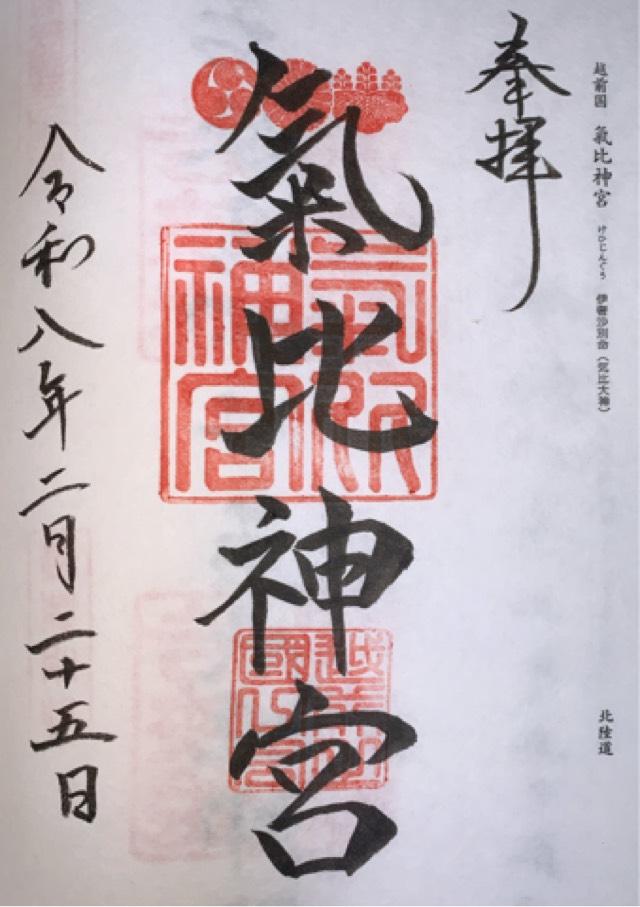 越前国 氣比神宮 けひじんぐう 伊奢沙別命（気比大神）
北陸道
奉拝
氣比神宮
氣比神宮
越前國
令和八年二月二十五日